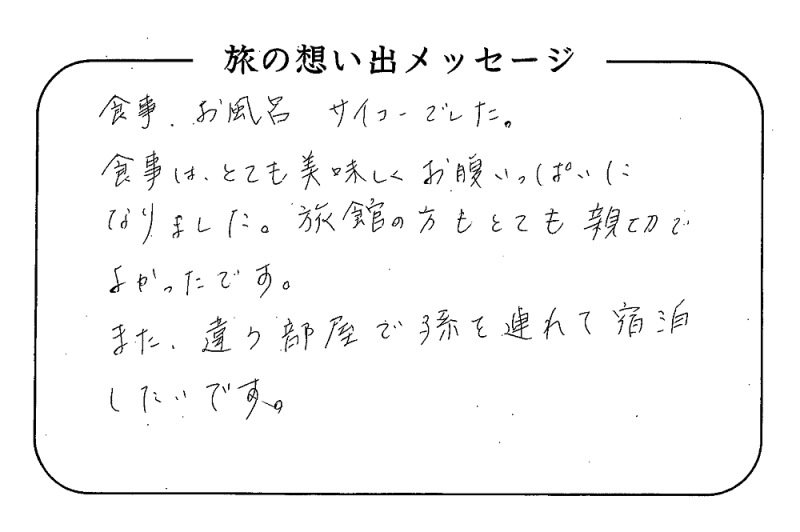 旅の想い出メッセージ
食事、お風呂 サイコーでした。
食事は、とても美味しくお腹いっぱいに
なりました。旅館の方もとても親切で
よかったです。
また、違う部屋で孫を連れて宿泊
したいです。